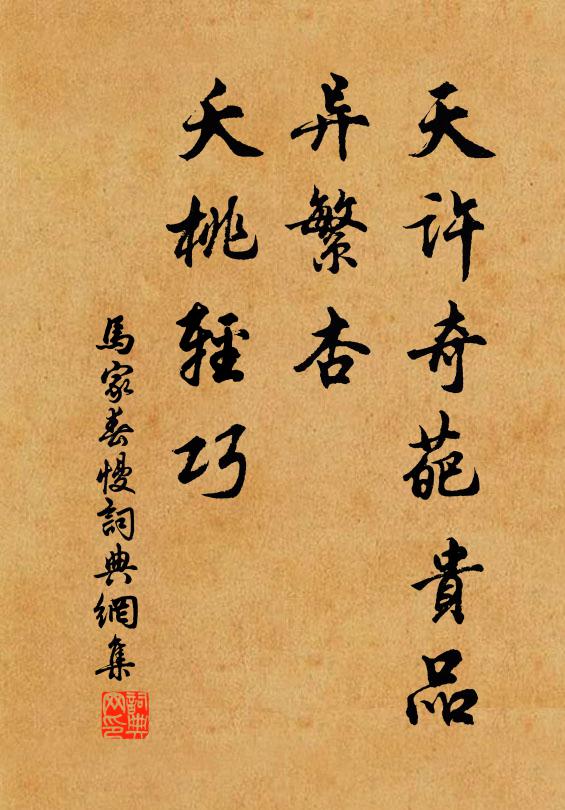 天许奇葩貴品
异繁杏
夭桃輕巧
馬家春慢詞典網集
詞典网印